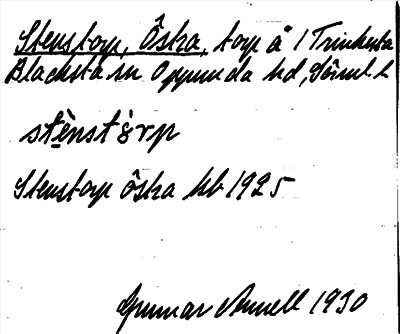 Stenstorp, Östra, torp å 1 Trinkesta
Blacksta sn Oppunda hd, Söml l
stènstórp
Stenstorp östra kb 1925
Gunnar 1930